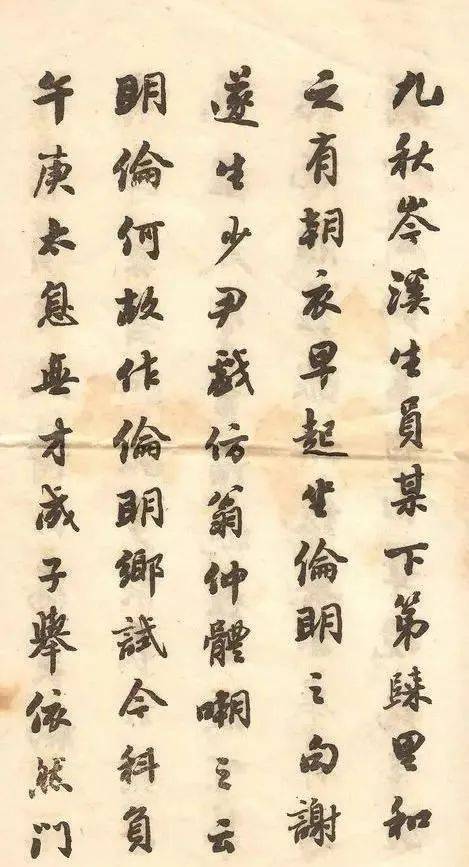 九秋岑溪生員某下第歸里和
之有朝衣早起坐倫明之句謝
遂生少尹戲仿翁仲體嘲之云
明倫何故作倫明鄉試今科負
午庚太息無才成子舉依然門